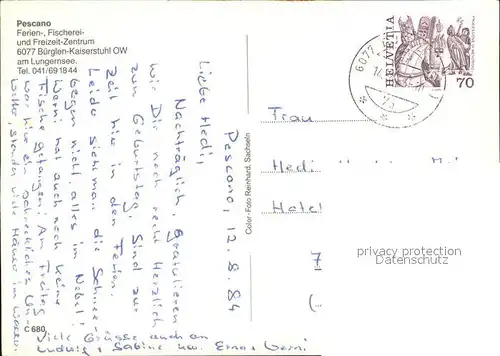 Pescano
Ferien-, Fischerei-
und Freizeit-Zentrum
6077 Bürglen-Kaiserstuhl OW
am Lungernsee.
Tel. 041/69 18 44
Pescano, 12.8.84
Liebe Hedi,
Nachträglich, gratulieren
wir Dir noch recht herzlich
zum Geburtstag. Sind zur
Zeit hier in den Ferien.
Leider sieht man die Schnee-
gegen nicht, alles in Nebel!
Werni hat auch noch keine
Fische gefangen! Am Freitag
war hier ein schreckliches Un-
wetter, standen viele Häuser im Wasser.
Viele Grüsse auch an
Ludwig + Sabine Erna + Werni
C 680
Color-Foto Reinhard, Sachseln
HELVETIA
70
6077
Frau
Hedi
Hotel
7
privacy protection
DatenschutzVO